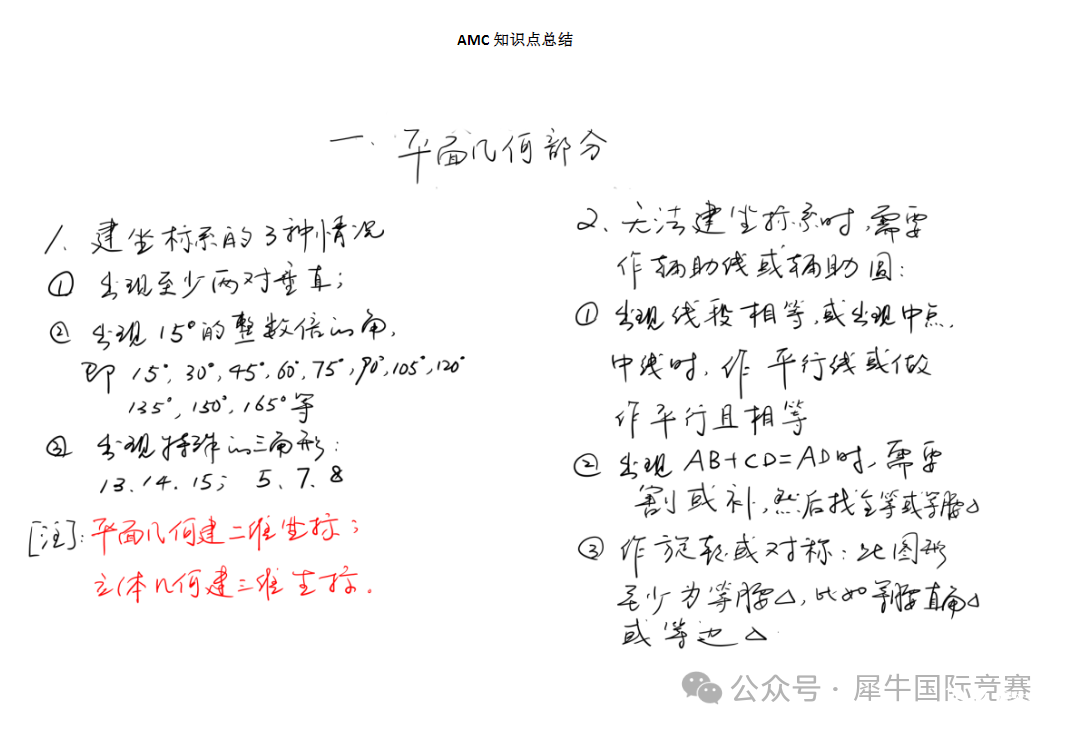 AMC 知识点总结
一、平面几何部分
1、建坐标系的3种情况
① 出现至少两对垂直；
② 出现15°的整数倍的角，
即 15°, 30°, 45°, 60°, 75°, 90°, 105°, 120°
135°, 150°, 165°等
③ 出现特殊的三角形：
13、14、15； 5、7、8
[注]：平面几何建二维坐标；
立体几何建三维坐标。
2、无法建坐标系时，需要
作辅助线或辅助圆：
① 出现线段相等，或出现中点，
中线时，作平行线或做
作平行且相等
② 出现 AB+CD=AD时，需要
割或补，然后找全等或等腰△
③ 作旋转或对称：此图形
至少为等腰△，比如等腰直角△
或等边△
公众号 · 犀牛国际竞赛